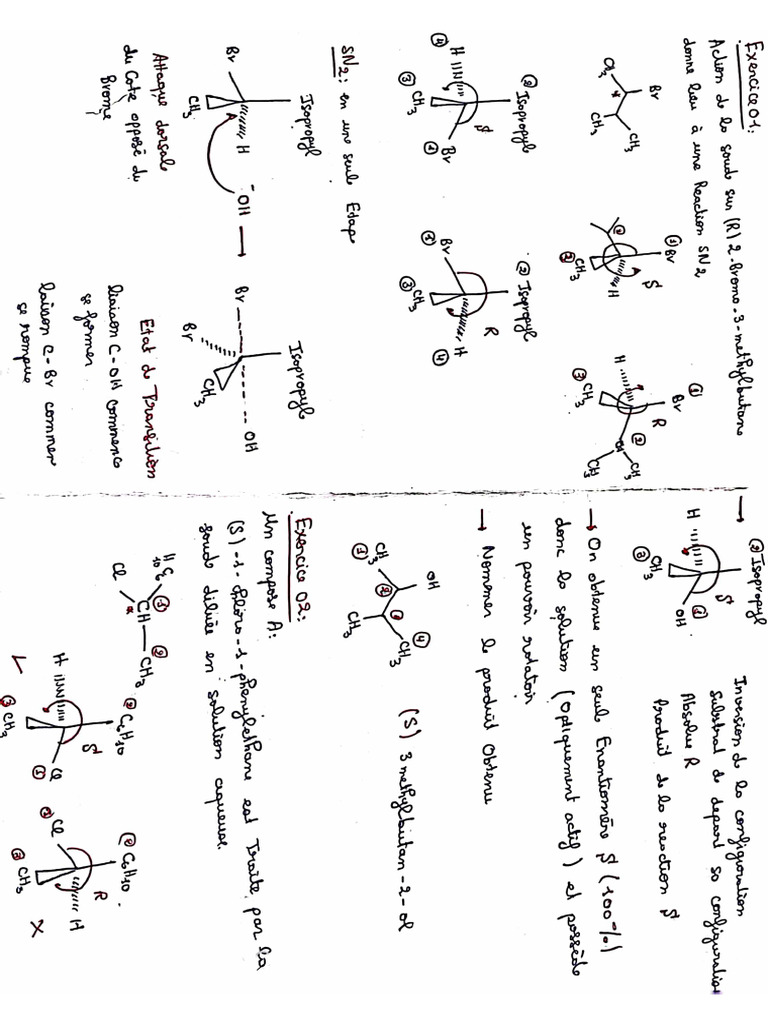 Exercice 01:
Action de la soude sur (R) 2-Bromo-3-methylbutane
donne lieu à une Reaction SN2
CH3
Br
*
CH3
CH3
① Br
②
③ CH3
H
S
①
Br
H
③ CH3
R
②
CH
CH3
CH3
② Isopropyl
④ H
③ CH3
S
Br ①
② Isopropyl
Br
③ CH3
R
H
④
SN2: en une seule Etape
Isopropyl
Br
CH3
H
-OH
Attaque dorsale
du Cote opposé du
Brome
Isopropyl
Br
Br
CH3
OH
Etat de Transition
liaison C-OH commence
se former
laison C-Br commen
se rompue
② Isopropyl
H
③ CH3
S
OH ①
Inversion de la configuration
substrat de depart so configuration
Absolue R
Produit de la reaction S
→ On obtenue un seule Enantiomère S (100%)
donc la solution (Optiquement actif) et possède
un pouvoir rotatoir
→ Nommer le produit Obtenu
OH
① CH3
②
③
CH3
CH3
④
(S) 3 methylbutan-2-ol
Exercice 02:
Un compose A:
(S)-1-chloro-1-phenylethane est Traite par la
soude diluée en solution aqueuse.
Cl
CH
①
②
CH3
② C6H10
H
③ CH3
S
Cl
①
② C6H10
Cl
③ CH3
R
H
X